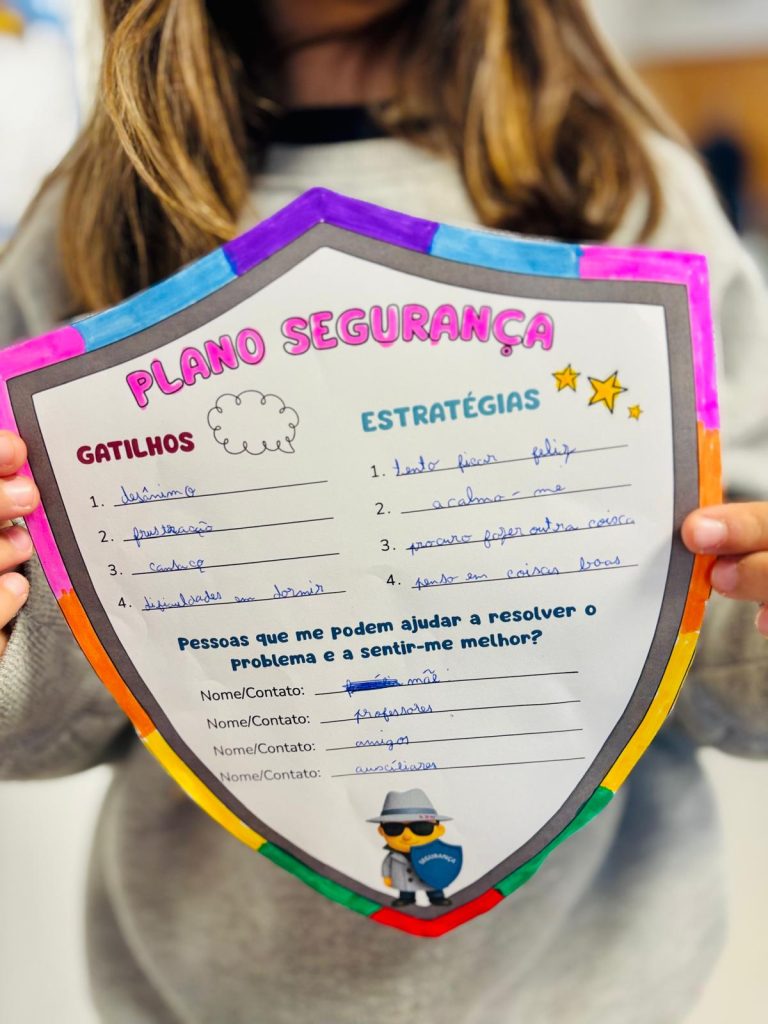 PLANO SEGURANÇA
GATILHOS
1. desânimo
2. frustração
3. cansaço
4. dificuldades em dormir
ESTRATÉGIAS
1. tento ficar feliz
2. acalmo-me
3. procuro fazer outra coisa
4. penso em coisas boas
Pessoas que me podem ajudar a resolver o
problema e a sentir-me melhor?
Nome/Contato: mãe
Nome/Contato: professores
Nome/Contato: amigos
Nome/Contato: auxciliares
SEGURANÇA